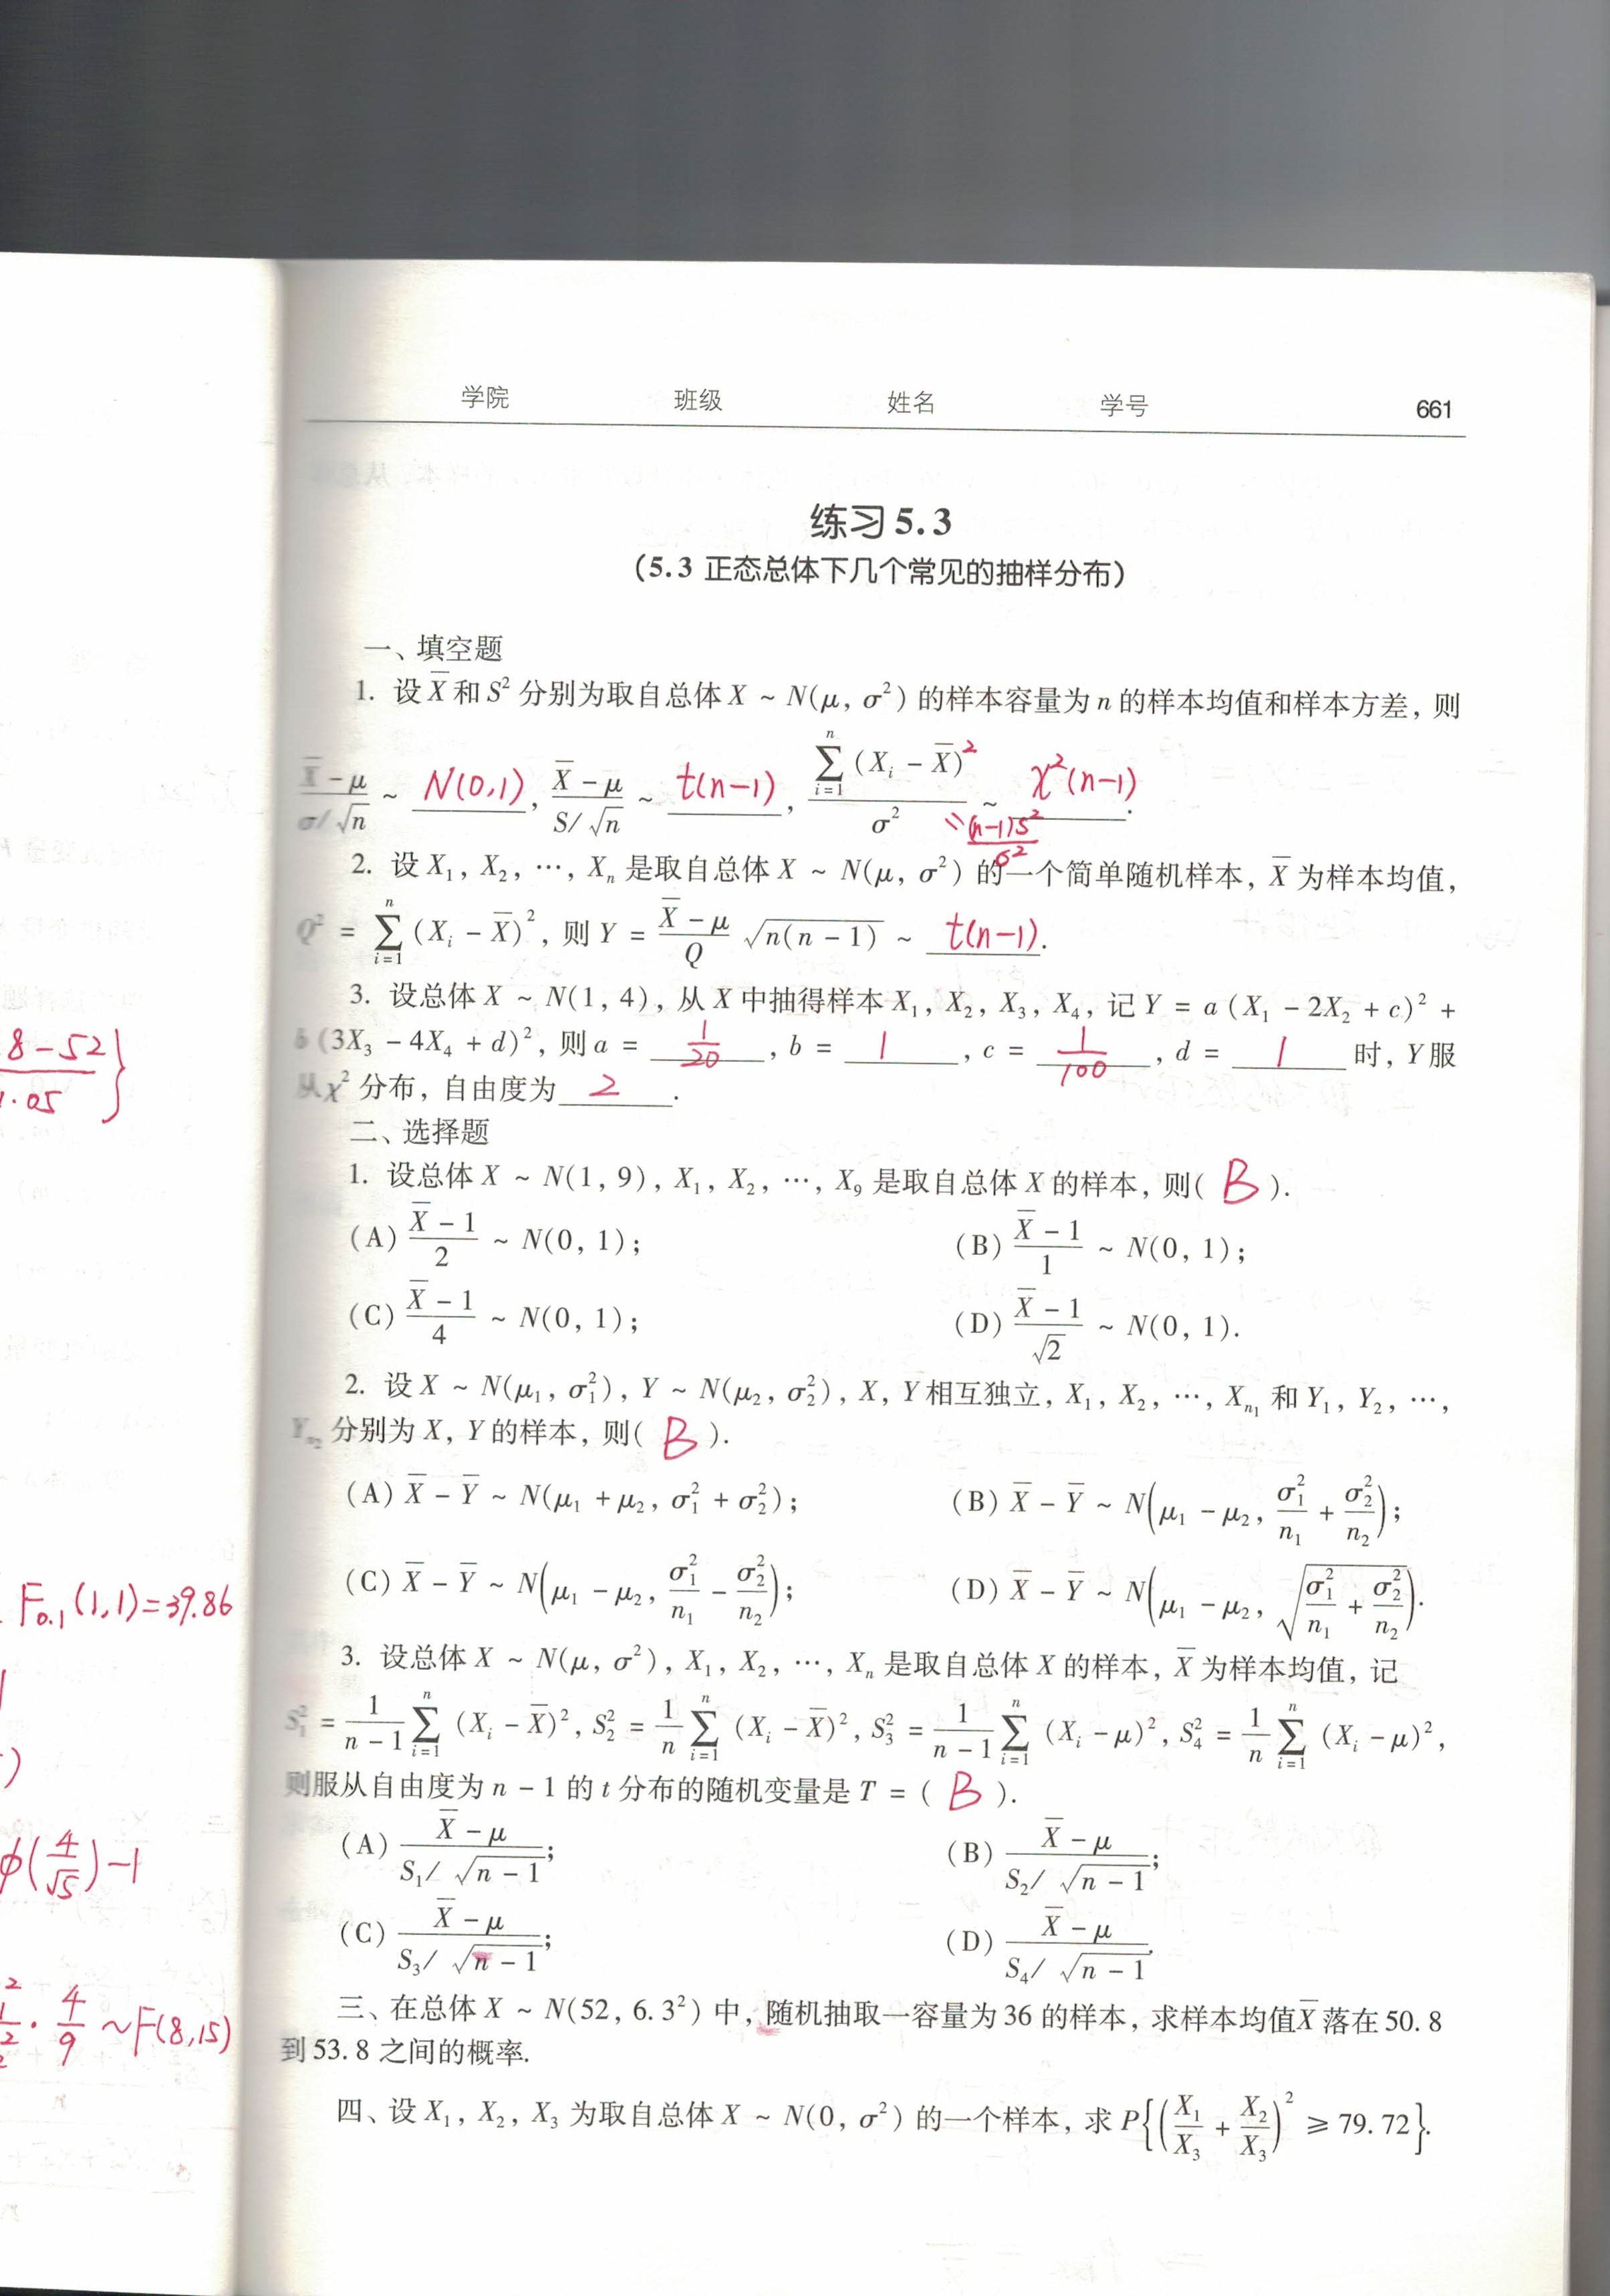 学院 班级 姓名 学号 661
练习5.3
(5.3 正态总体下几个常见的抽样分布)
一、填空题
1. 设 X̄ 和 S² 分别为取自总体 X ~ N(μ, σ²) 的样本容量为 n 的样本均值和样本方差, 则
(X̄ - μ)/(σ/√n) ~ N(0,1), (X̄ - μ)/(S/√n) ~ t(n-1), ∑_{i=1}^{n} (X_i - X̄)² / σ² ~ χ²(n-1).
= (n-1)S²/σ²
2. 设 X₁, X₂, ⋯, Xₙ 是取自总体 X ~ N(μ, σ²) 的一个简单随机样本, X̄ 为样本均值,
Q² = ∑_{i=1}^{n} (X_i - X̄)², 则 Y = (X̄ - μ)/Q √(n(n - 1)) ~ t(n-1).
3. 设总体 X ~ N(1, 4), 从 X 中抽得样本 X₁, X₂, X₃, X₄, 记 Y = a (X₁ - 2X₂ + c)² +
b (3X₃ - 4X₄ + d)², 则 a = 1/20, b = 1, c = 1/100, d = 1 时, Y 服
从 χ² 分布, 自由度为 2.
二、选择题
1. 设总体 X ~ N(1, 9), X₁, X₂, ⋯, X₉ 是取自总体 X 的样本, 则( B ).
(A) (X̄ - 1)/2 ~ N(0, 1); (B) (X̄ - 1)/1 ~ N(0, 1);
(C) (X̄ - 1)/4 ~ N(0, 1); (D) (X̄ - 1)/√2 ~ N(0, 1).
2. 设 X ~ N(μ₁, σ₁²), Y ~ N(μ₂, σ₂²), X, Y 相互独立, X₁, X₂, ⋯, X_{n₁} 和 Y₁, Y₂, ⋯,
Y_{n₂} 分别为 X, Y 的样本, 则( B ).
(A) X̄ - Ȳ ~ N(μ₁ + μ₂, σ₁² + σ₂²); (B) X̄ - Ȳ ~ N(μ₁ - μ₂, σ₁²/n₁ + σ₂²/n₂);
(C) X̄ - Ȳ ~ N(μ₁ - μ₂, σ₁²/n₁ - σ₂²/n₂); (D) X̄ - Ȳ ~ N(μ₁ - μ₂, √(σ₁²/n₁ + σ₂²/n₂)).
3. 设总体 X ~ N(μ, σ²), X₁, X₂, ⋯, Xₙ 是取自总体 X 的样本, X̄ 为样本均值, 记
S₁² = 1/(n - 1) ∑_{i=1}^{n} (X_i - X̄)², S₂² = 1/n ∑_{i=1}^{n} (X_i - X̄)², S₃² = 1/(n - 1) ∑_{i=1}^{n} (X_i - μ)², S₄² = 1/n ∑_{i=1}^{n} (X_i - μ)²,
则服从自由度为 n - 1 的 t 分布的随机变量是 T = ( B ).
(A) (X̄ - μ)/(S₁/√(n - 1)); (B) (X̄ - μ)/(S₂/√(n - 1));
(C) (X̄ - μ)/(S₃/√(n - 1)); (D) (X̄ - μ)/(S₄/√(n - 1)).
三、在总体 X ~ N(52, 6.3²) 中, 随机抽取一容量为 36 的样本, 求样本均值 X̄ 落在 50.8
到 53.8 之间的概率.
四、设 X₁, X₂, X₃ 为取自总体 X ~ N(0, σ²) 的一个样本, 求 P{(X₁/X₃ + X₂/X₃)² ≥ 79.72}.
8-52}
1.05
F₀.₁(1,1)=39.86
φ(4/√5)-1
· 4/9 ~F(8,15)